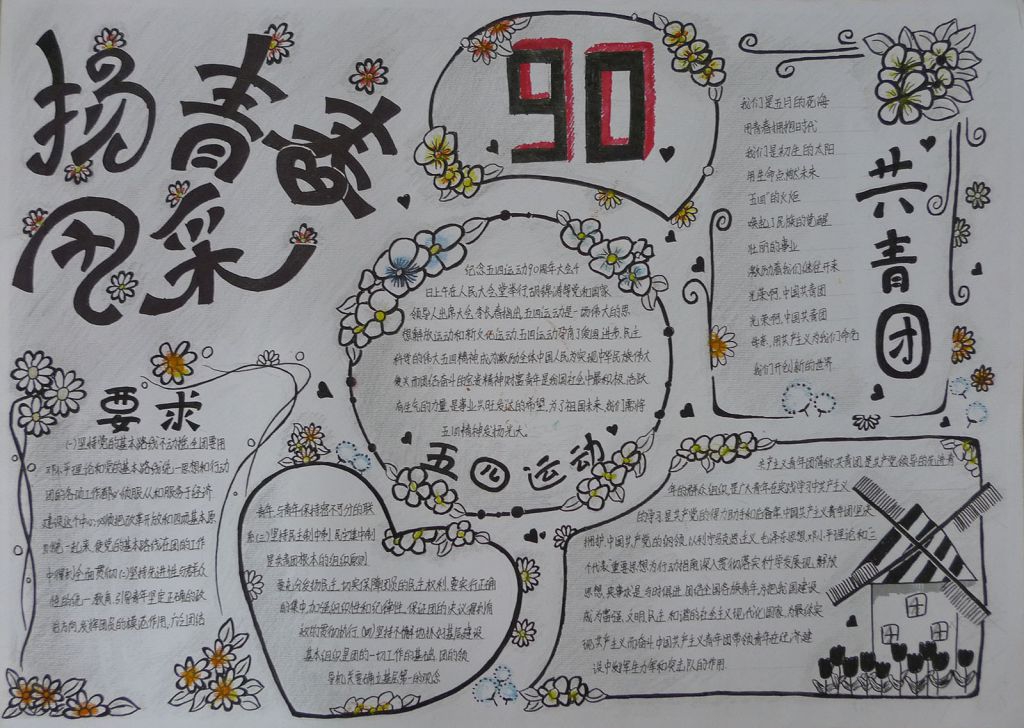 扬青
风采
90
我们是五月的花海
用青春拥抱时代
我们是初生的太阳
用生命点燃未来
"五四"的火炬
唤起了民族的觉醒
壮丽的事业
激励着我们继往开来
光荣啊，中国共青团
光荣啊，中国共青团
母亲，用共产主义为我们命名
我们开创新的世界
共青团
纪念五四运动90周年大会4
日上午在人民大会堂举行，胡锦涛等党和国家
领导人出席大会，李长春指出，五四运动是一场伟大的思
想解放运动和新文化运动，五四运动孕育了爱国、进步、民主
科学的伟大五四精神，成为激励全体中国人民为实现中华民族伟大
复兴而团结奋斗的宝贵精神财富，青年是我国社会中最积极、活跃
有生气的力量，是事业兴旺发达的希望，为了祖国未来，我们需将
五四精神发扬光大。
五四运动
要求
(一)坚持党的基本路线不动摇，全团要用
邓小平理论和党的基本路线统一思想和行动
团的各项工作都必须服从和服务于经济
建设这个中心，必须把改革开放和四项基本原
则统一起来，使党的基本路线在团的工作
中得到全面贯彻(二)坚持先进性与群众
性的统一，教育、引导青年坚定正确的政
治方向，发挥团员的模范作用，广泛团结
青年，与青年保持密不可分的联
系(三)坚持民主集中制，民主集中制
是共青团根本的组织原则
要充分发扬民主，切实保障团员的民主权利，要实行正确
的集中，加强组织性和纪律性，保证团的决议得到有
效的贯彻执行，(四)坚持不懈地抓好基层建设
基本组织是团的一切工作的基础，团的领
导机关要确立基层第一的观念
共产主义青年团简称共青团，是共产党领导的先进青
年的群众组织，是广大青年在实践学习中共产主义
的学习，是共产党的得力助手和后备军，中国共产主义青年团坚决
拥护中国共产党的纲领，以列宁马克思主义、毛泽东思想、邓小平理论和三
个代表重要思想为行动指南，深入贯彻落实科学发展观，解放
思想，实事求是，与时俱进，团结全国各族青年为把我国建设
成为富强、文明、民主、和谐的社会主义现代化国家，为最终实
现共产主义而奋斗，中国共产主义青年团带领青年在经济建
设中发挥生力军和突击队的作用